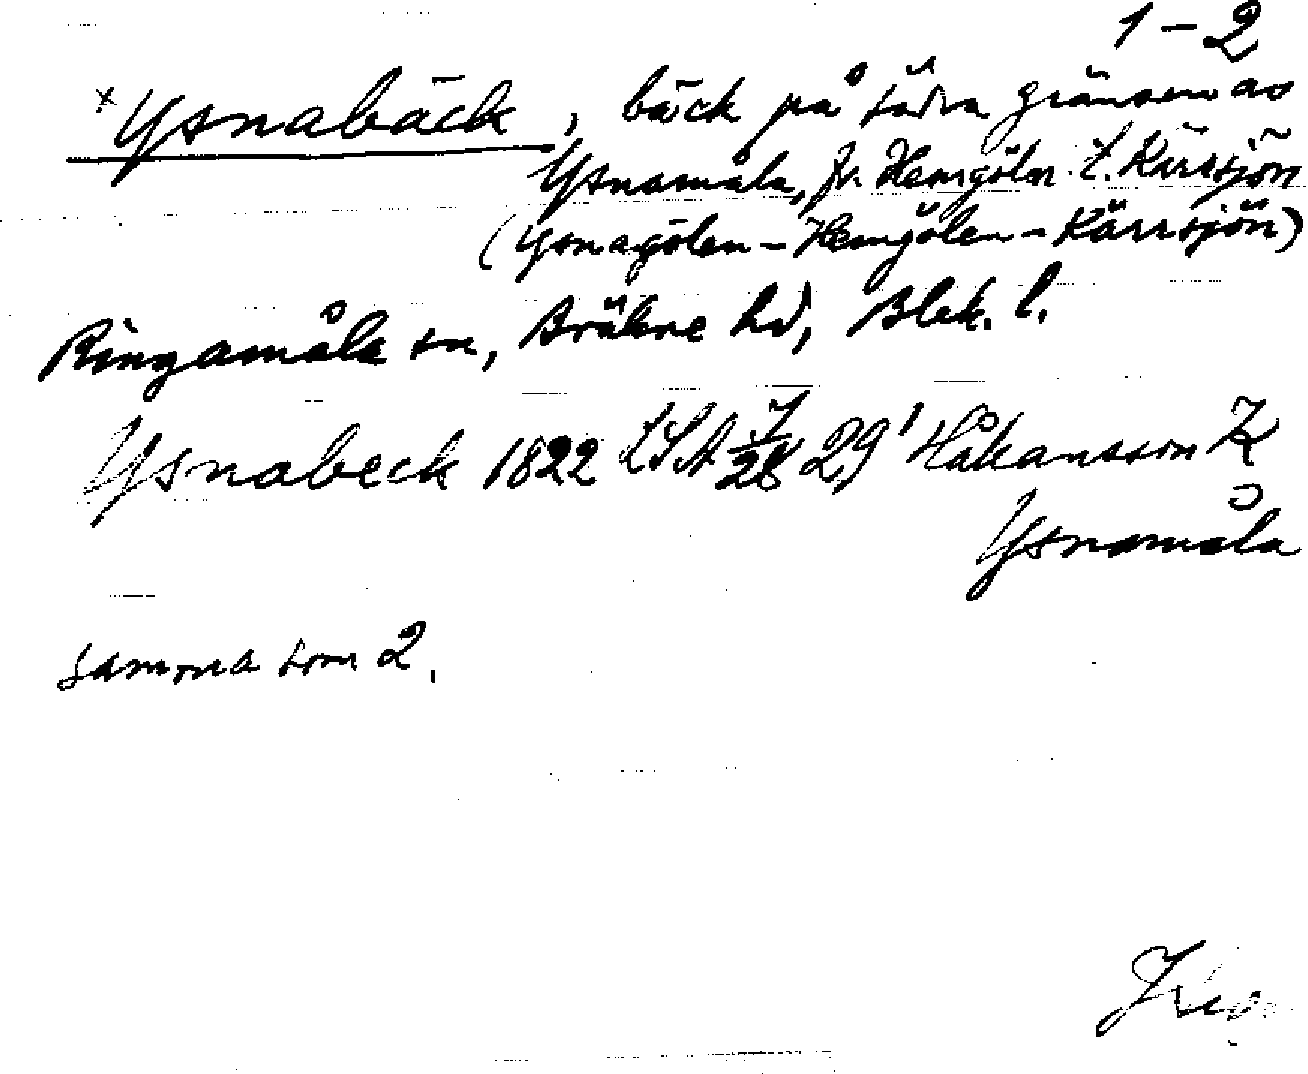 1-2
× Ysnabäck, bäck på södra gränsen av
Ysnamåla, fr. Hemgölen t. Kärrsjön
(Ysnagölen - Hemgölen - Kärrsjön)
Ringamåla sn, Bräkne hd, Blek. l.
Ysnabeck 1822 LSA 29' Håkansson K
Ysnamåla
samma som 2.